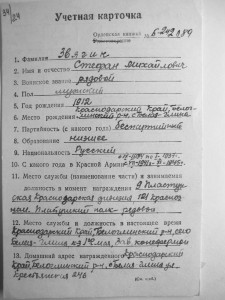 34
24
Учетная карточка
Орденская книжка № Б-242089
1. Фамилия Звягин
2. Имя и отчество Стефан Михайлович
3. Воинское звание рядовой
4. Пол мужской
5. Год рождения 1912
6. Место рождения Краснодарский Край, Бело-
глинский р-н, с. Белая-Глина
7. Партийность (с какого года) беспартийный
8. Образование низшее
9. Национальность Русский
10. С какого года в Красной Армии
11. Место службы (наименование части) и занимаемая
должность в момент награждения 9 Пластун-
ская Краснодарская дивизия, 121 красно-
полк - рядовой
12. Место службы и должность в настоящее время
Краснодарский Край, Белоглинский р-н, село
Белая-Глина
13. Домашний адрес награжденного Краснодарский
Край, Белоглинский р-н, с. Белая-Глина ул.
Крестьянская 248